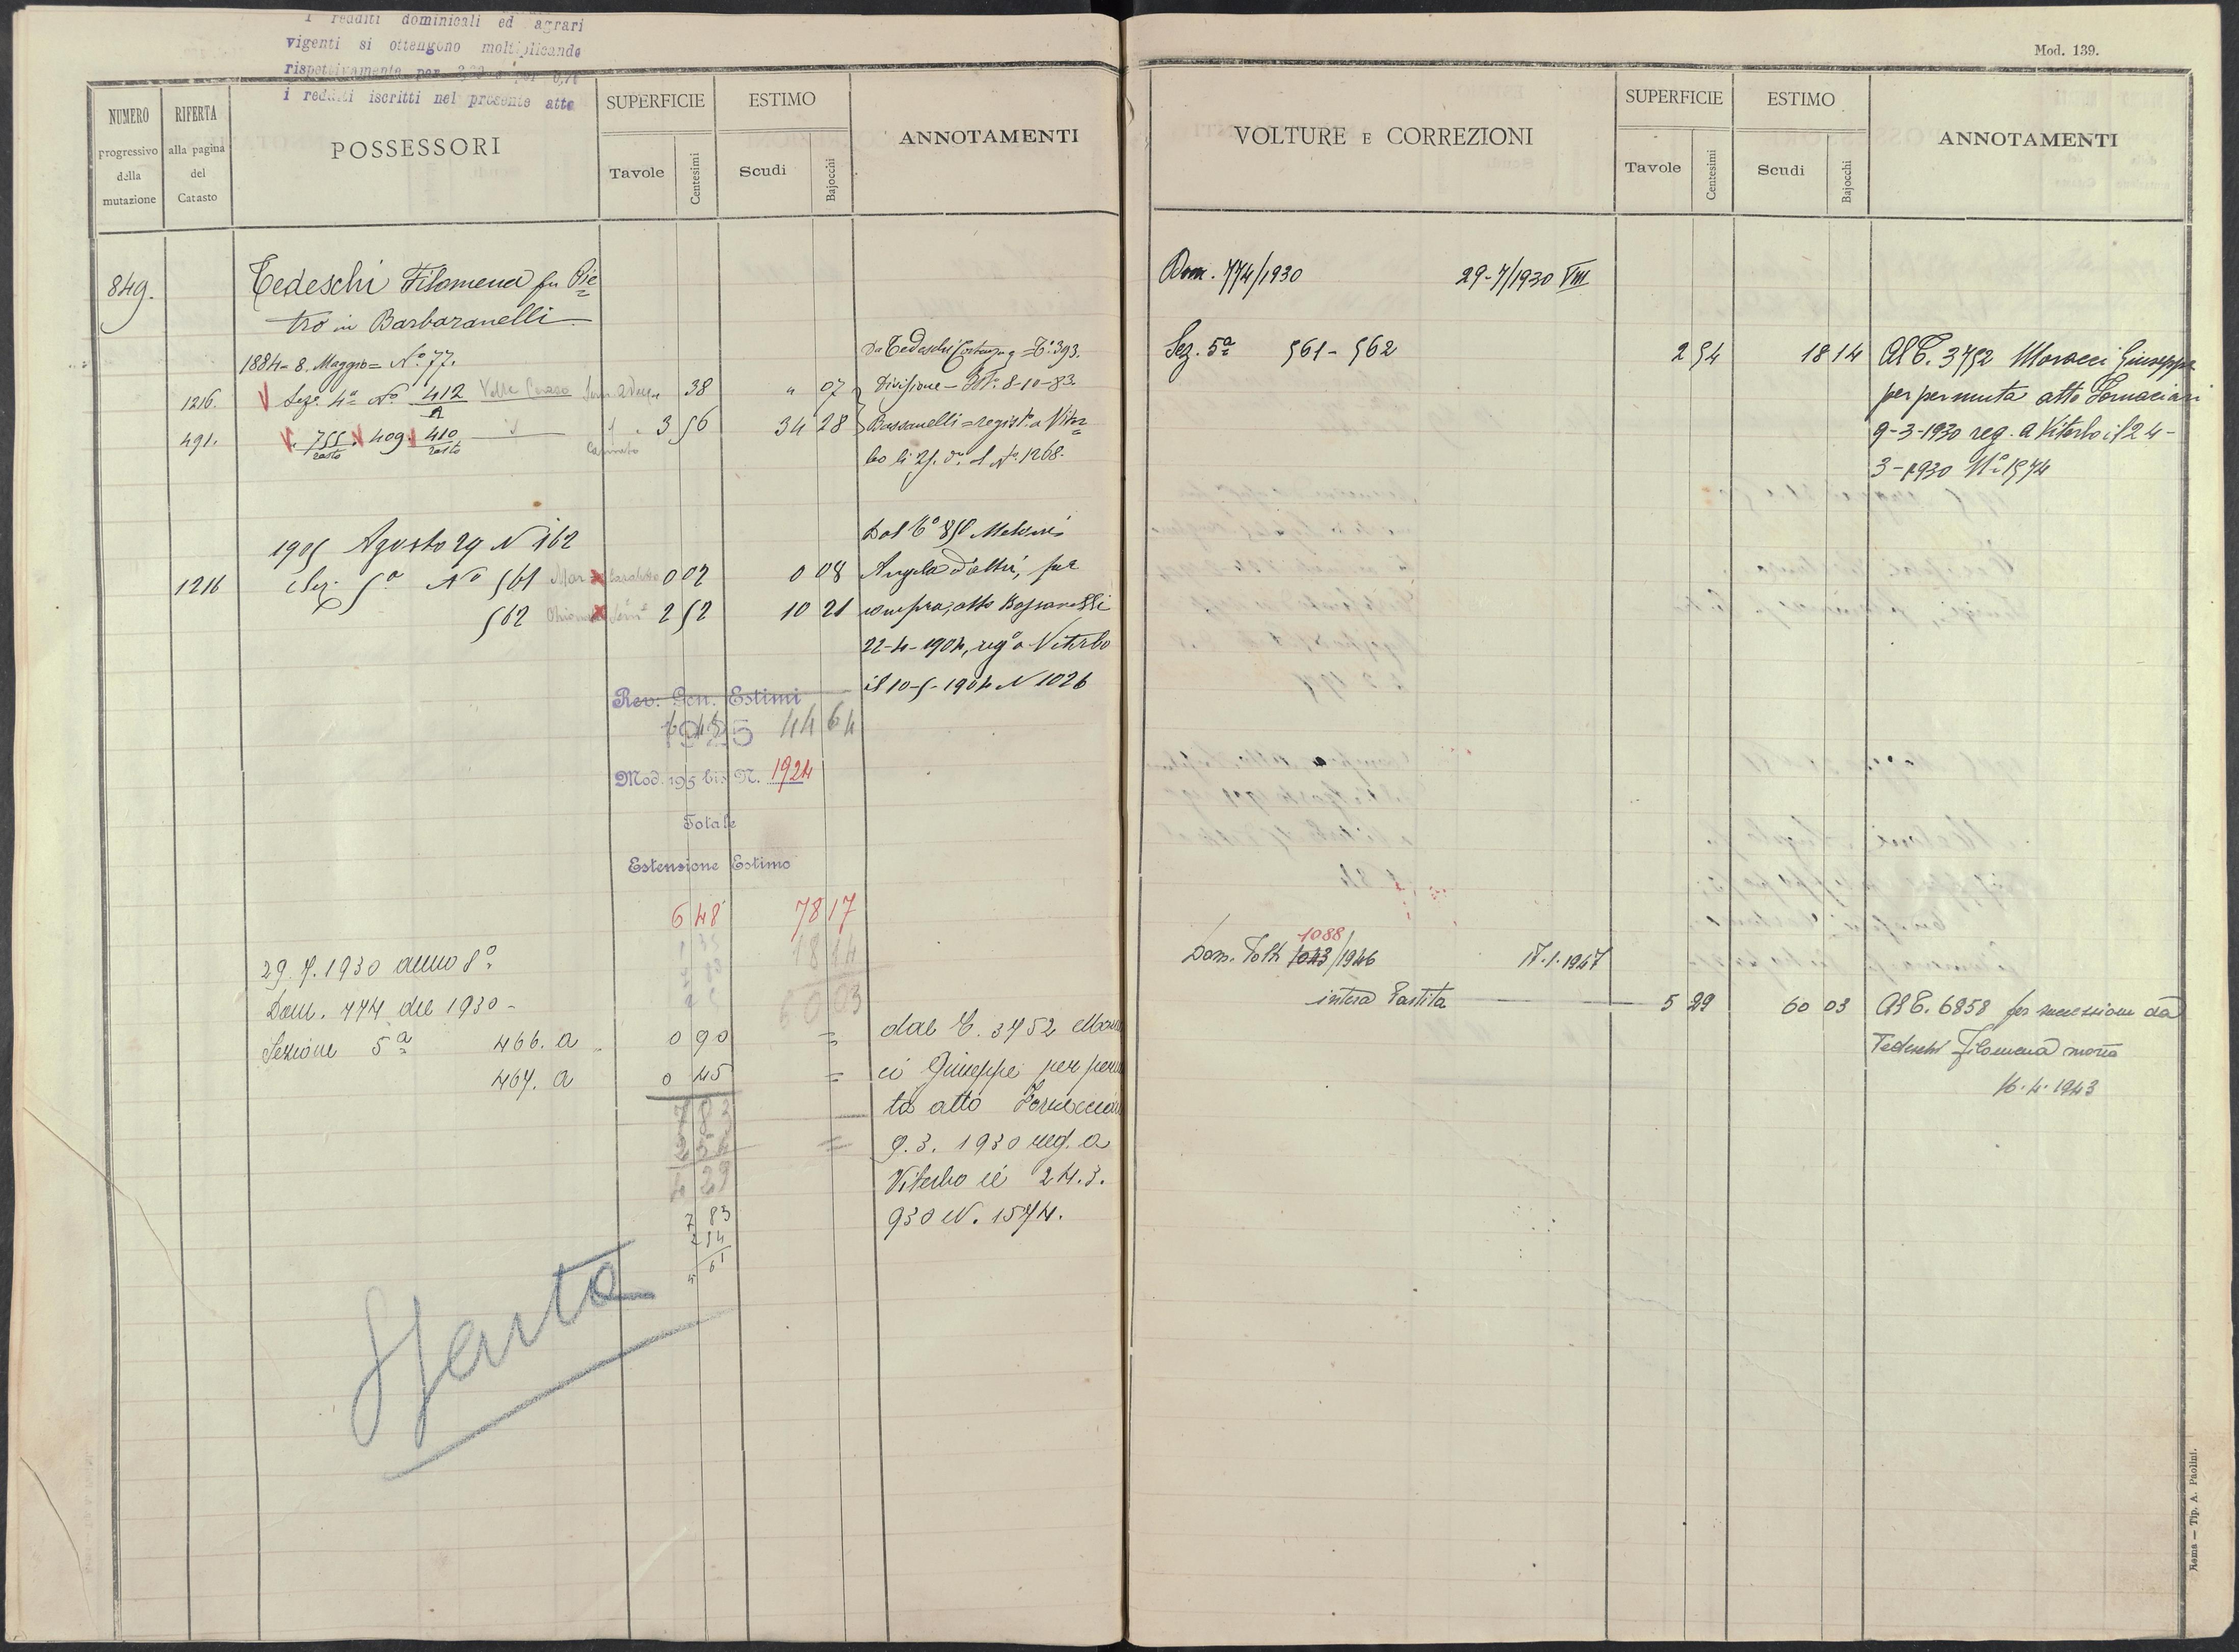 I redditi dominicali ed agrari
vigenti si ottengono moltiplicando
rispettivamente per
i redditi iscritti nel presente atto
NUMERO
progressivo
della
mutazione
RIFERTA
alla pagina
del
Catasto
POSSESSORI
SUPERFICIE
Tavole
Centesimi
ESTIMO
Scudi
Bajocchi
ANNOTAMENTI
849.
Tedeschi Filomena fu Pie=
tro in Barbaranelli
1884 = 8. Maggio = No. 77.
1216. V Seze. 4a No 412/A 38 " 07
491. V. 755/resto V 409. V 410/resto 3 56 34 28
Da Tedeschi =To. 393.
Divisione = 8-10-83.
Bassanelli = regist.o a Viter=
bo li 25. do. al No. 1268.
1905 Agosto 29 N 162
1216 Sez. 5a No 561 0 02 0 08
562 2 52 10 21
Dal To 850
Angela d'altri, per
compra, atto Bassanelli
22-4-1904, rego a Viterbo
il 10-5-1904 N 1026
Rev. Gen. Estimi
1925
6 48 44 64
Mod. 195 bis N. 1924
Totale
Estensione Estimo
6 48 78 17
18 14
60 03
29.7.1930 anno 8o
Dom. 774 del 1930 -
Sezione 5a 466. a 0 90 =
467. a 0 45 =
7 83
2 54
4 29
7 83
2 54
5 61
dal T. 3752
ci Giuseppe per
ta atto
9.3. 1930 reg. a
Viterbo il 24.3.
930 N. 1574.
Mod. 139.
VOLTURE E CORREZIONI
SUPERFICIE
Tavole
Centesimi
ESTIMO
Scudi
Bajocchi
ANNOTAMENTI
Dom. 774/1930 29-7/1930 VIII
Sez. 5a 561 - 562 2 54 18 14
Al T. 3752 Moracci Giuseppe
per permuta atto Fornaciari
9-3-1930 reg. a Viterbo il 24-
3-1930 No 1574
1088
Dom. 1043/1946 17.1.1947
intera Partita 5 29 60 03
Al T. 6858 per successione da
Tedeschi Filomena morta
16.4.1943
Roma — Tip. A. Paolini.